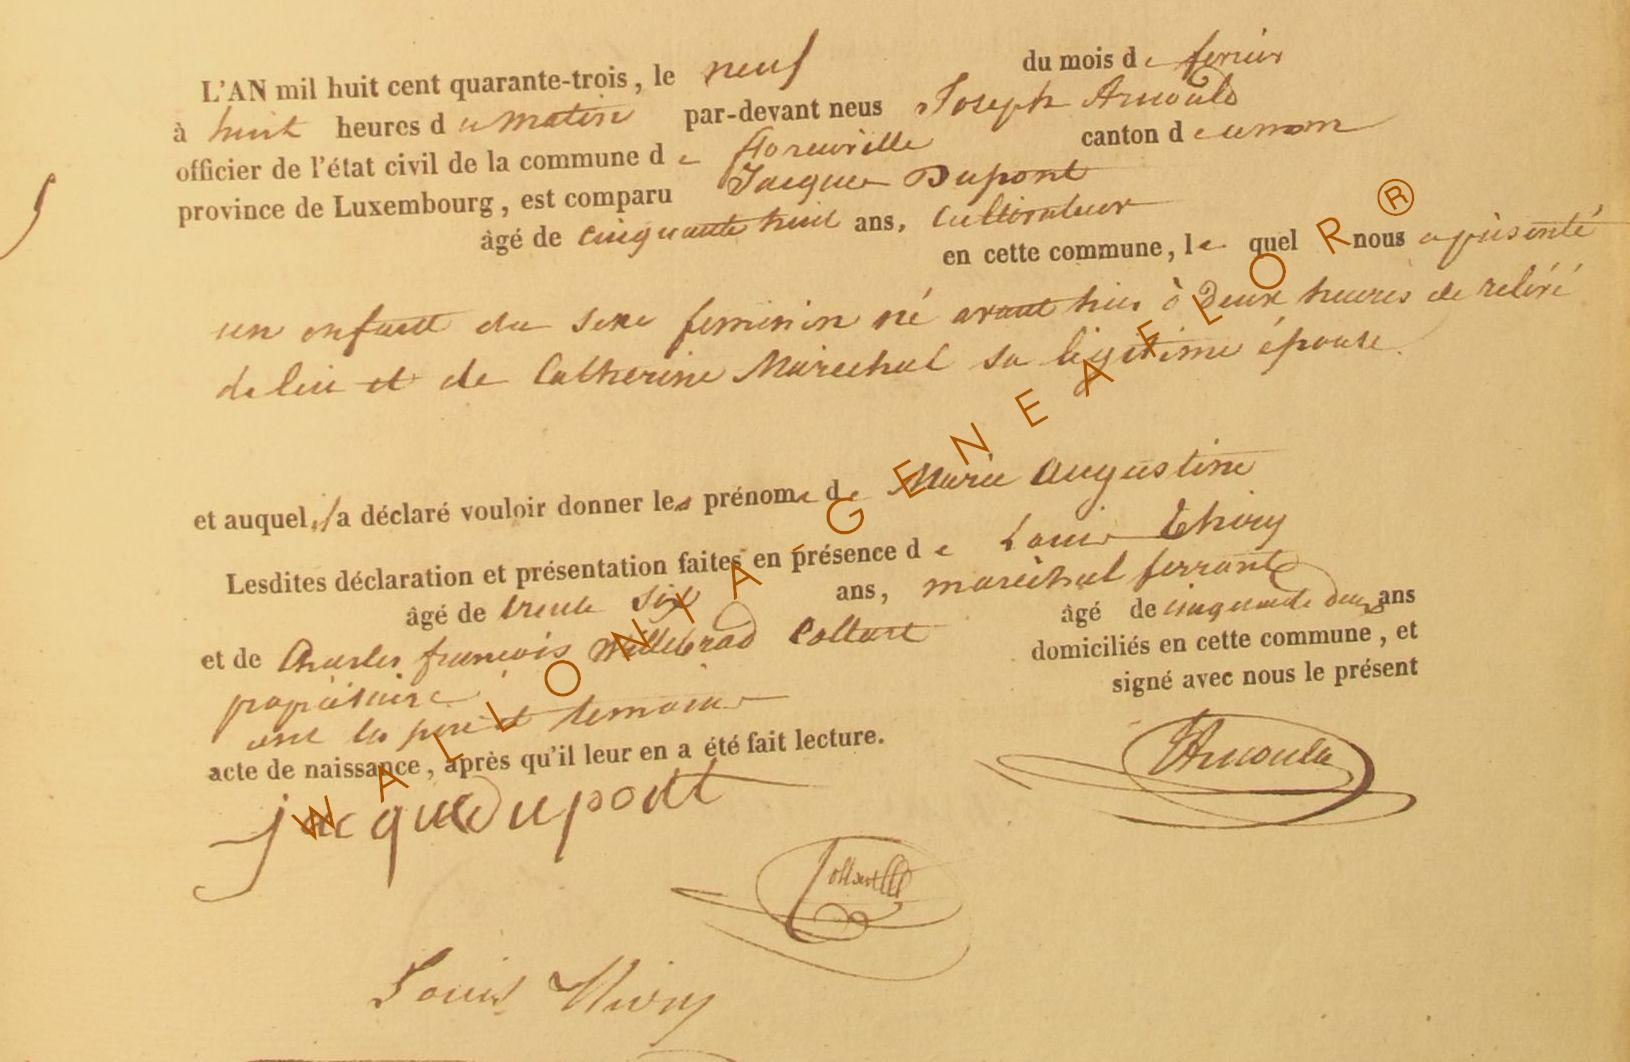 L'AN mil huit cent quarante-trois, le neuf du mois de fevrier
à huit heures du matin par-devant nous Joseph Arnould
officier de l'état civil de la commune de florenville canton de
province de Luxembourg, est comparu Jacque Dupont
âgé de cinquante huit ans, Cultivateur
en cette commune, le quel nous a présenté
un enfant du sexe feminin né avant hier à Deux heures de relévé
de lui et de Catherine Marechal sa légitime épouse.
et auquel il a déclaré vouloir donner les prénoms de Marie Augustine
Lesdites déclaration et présentation faites en présence de Louis Thiry
âgé de trente six ans, maréchal ferrant
et de Charles françois Willebrad Collart âgé de cinquante deux ans
propriétaire domiciliés en cette commune, et
ont les pere et temoins signé avec nous le présent
acte de naissance, après qu'il leur en a été fait lecture.
jacque Dupont
JArnould
Collart
Louis Thiry
WALLONIA-GENEAFLOR ®